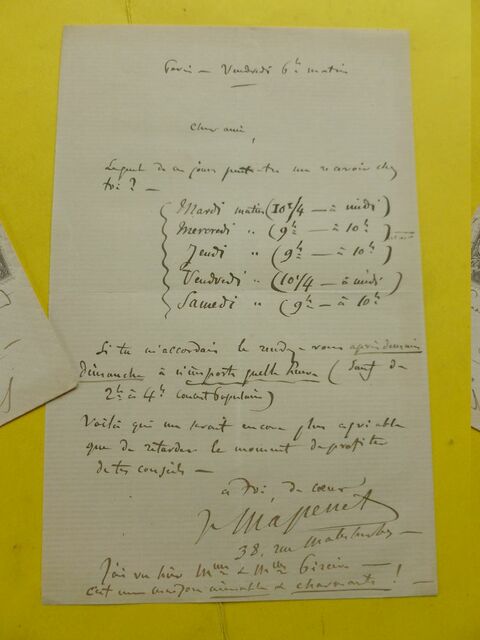 Paris — Vendredi 6h matin
Cher ami,
Lequel de ces jours peux-tu me recevoir chez
toi ? —
Mardi matin (10 1/4 — à midi)
Mercredi " (9h — à 10h)
Jeudi " (9h — à 10h)
Vendredi " (10 1/4 — à midi)
Samedi " (9h — à 10h)
Si tu m'accordais le rendez-vous après demain
Dimanche à n'importe quelle heure (sauf de
2h à 4h Concert Populaire)
Voilà qui me serait encore plus agréable
que de retarder le moment de profiter
de tes conseils —
à toi, de cœur,
J. Massenet
38, rue Malesherbes —
J'ai vu hier Mme & Mlle —
c'est une maison aimable & charmante ! —